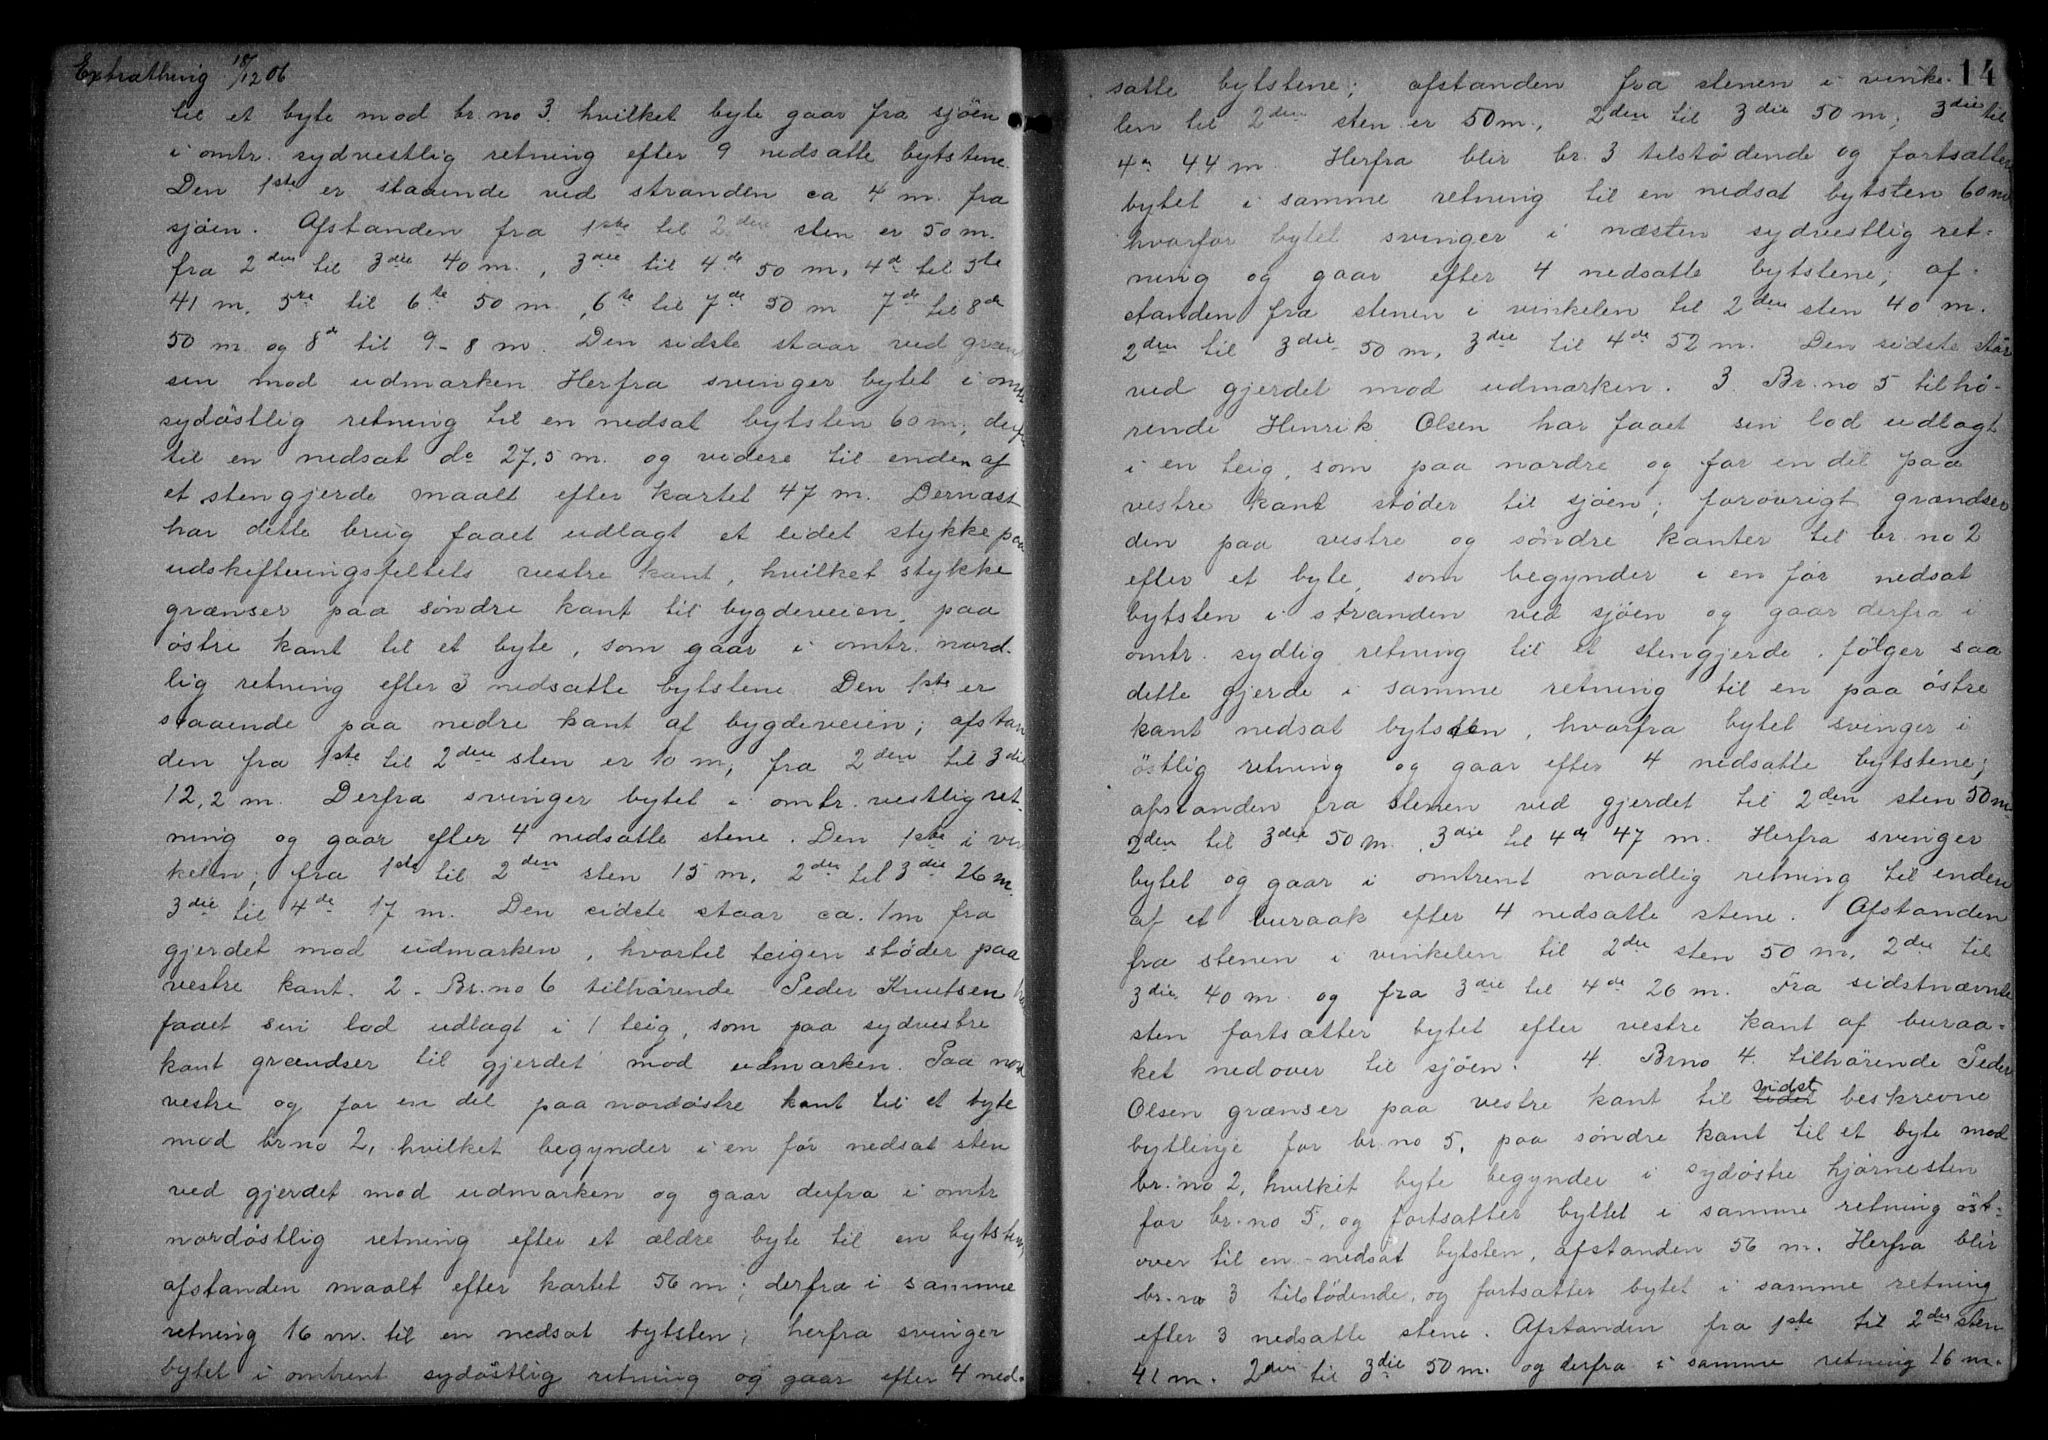 Extrathing 18/12 06
til et byte mod br. no 3. hvilket byte gaar fra sjöen
i omtr. sydvestlig retning efter 9 nedsatte bytstene.
Den 1ste er staaende ved stranden ca 4 m. fra
sjöen. Afstanden fra 1ste til 2den sten er 50 m.
fra 2den til 3die 40 m., 3die til 4de 50 m, 4d til 5te
41 m, 5te til 6te 50 m, 6te til 7de 50 m 7de til 8de
50 m og 8d til 9 - 8 m. Den sidste staar ved græn
sen mod udmarken. Herfra svinger bytet i omtr.
sydöstlig retning til en nedsat bytsten 60 m, derfra
til en nedsat do 27,5 m. og videre til enden af
et stengjerde maalt efter kartet 47 m. Dernæst
har dette brug faaet udlagt et lidet stykke paa
udskiftningsfeltets vestre kant, hvilket stykke
grænser paa söndre kant til bygdeveien, paa
östre kant til et byte, som gaar i omtr. nord-
lig retning efter 3 nedsatte bytstene. Den 1ste er
staaende paa nedre kant af bygdeveien; afstan
den fra 1ste til 2den sten er 10 m, fra 2den til 3die
12,2 m. Derfra svinger bytet i omtr. vestlig ret-
ning og gaar efter 4 nedsatte stene. Den 1ste i vin
kelen; fra 1ste til 2den sten 15 m, 2den til 3die 26 m.
3die til 4de 17 m. Den sidste staar ca. 1 m fra
gjerdet mod udmarken, hvortil teigen støder paa
vestre kant. 2. Br. no 6 tilhörende Peder Knutsen har
faaet sin lod udlagt i 1 teig, som paa sydvestre
kant grændser til gjerdet mod udmarken. Paa nord
vestre og for en del paa nordöstre kant til et byte
mod br no 2, hvilket begynder i en för nedsat sten
ved gjerdet mod udmarken og gaar derfra i omtr
nordöstlig retning efter et ældre byte til en bytsten,
afstanden maalt efter kartet 56 m; derfra i samme
retning 16 m. til en nedsat bytsten; herfra svinger
bytet i omtrent sydöstlig retning og gaar efter 4 ned-
14
satte bytstene; afstanden fra stenen i vinke-
len til 2den sten er 50 m, 2den til 3die 50 m; 3die til
4de 44 m. Herfra blir br. 3 tilstødende og fortsætter
bytet i samme retning til en nedsat bytsten 60 m
hvorfor bytet svinger i næsten sydvestlig ret-
ning og gaar efter 4 nedsatte bytstene; af-
standen fra stenen i vinkelen til 2den sten 40 m.
2den til 3die 50 m, 3die til 4de 52 m. Den sidste står
ved gjerdet mod udmarken. 3. Br. no 5 tilhö-
rende Henrik Olsen har faaet sin lod udlagt
i en teig, som paa nordre og for en del paa
vestre kant støder til sjöen; forövrigt grændser
den paa vestre og söndre kanter til br. no 2
efter et byte, som begynder i en för nedsat
bytsten i stranden ved sjöen og gaar derfra i
omtr. sydlig retning til et stengjerde, fölger saa
dette gjerde i samme retning til en paa östre
kant nedsat bytsten, hvorfra bytet svinger i
östlig retning og gaar efter 4 nedsatte bytstene;
afstanden fra stenen ved gjerdet til 2den sten 50 m
2den til 3die 50 m, 3die til 4de 47 m. Herfra svinger
bytet og gaar i omtrent nordlig retning til enden
af et buraak efter 4 nedsatte stene. Afstanden
fra stenen i vinkelen til 2den sten 50 m, 2den til
3die 40 m og fra 3die til 4de 26 m. Fra sidstnævnte
sten fortsætter bytet efter vestre kant af buraa-
ket nedover til sjöen. 4. Br no 4. tilhörende Peder
Olsen grænser paa vestre kant til sidst beskrevne
bytlinje for br. no 5, paa söndre kant til et byte mod
br. no 2, hvilket byte begynder i sydöstre hjörnesten
for br. no 5, og fortsætter byttet i samme retning öst-
over til en nedsat bytsten, afstanden 56 m. Herfra blir
br. no 3 tilstödende, og fortsætter bytet i samme retning
efter 3 nedsatte stene. Afstanden fra 1ste til 2den sten
41 m. 2den til 3die 50 m. og derfra i samme retning 16 m.